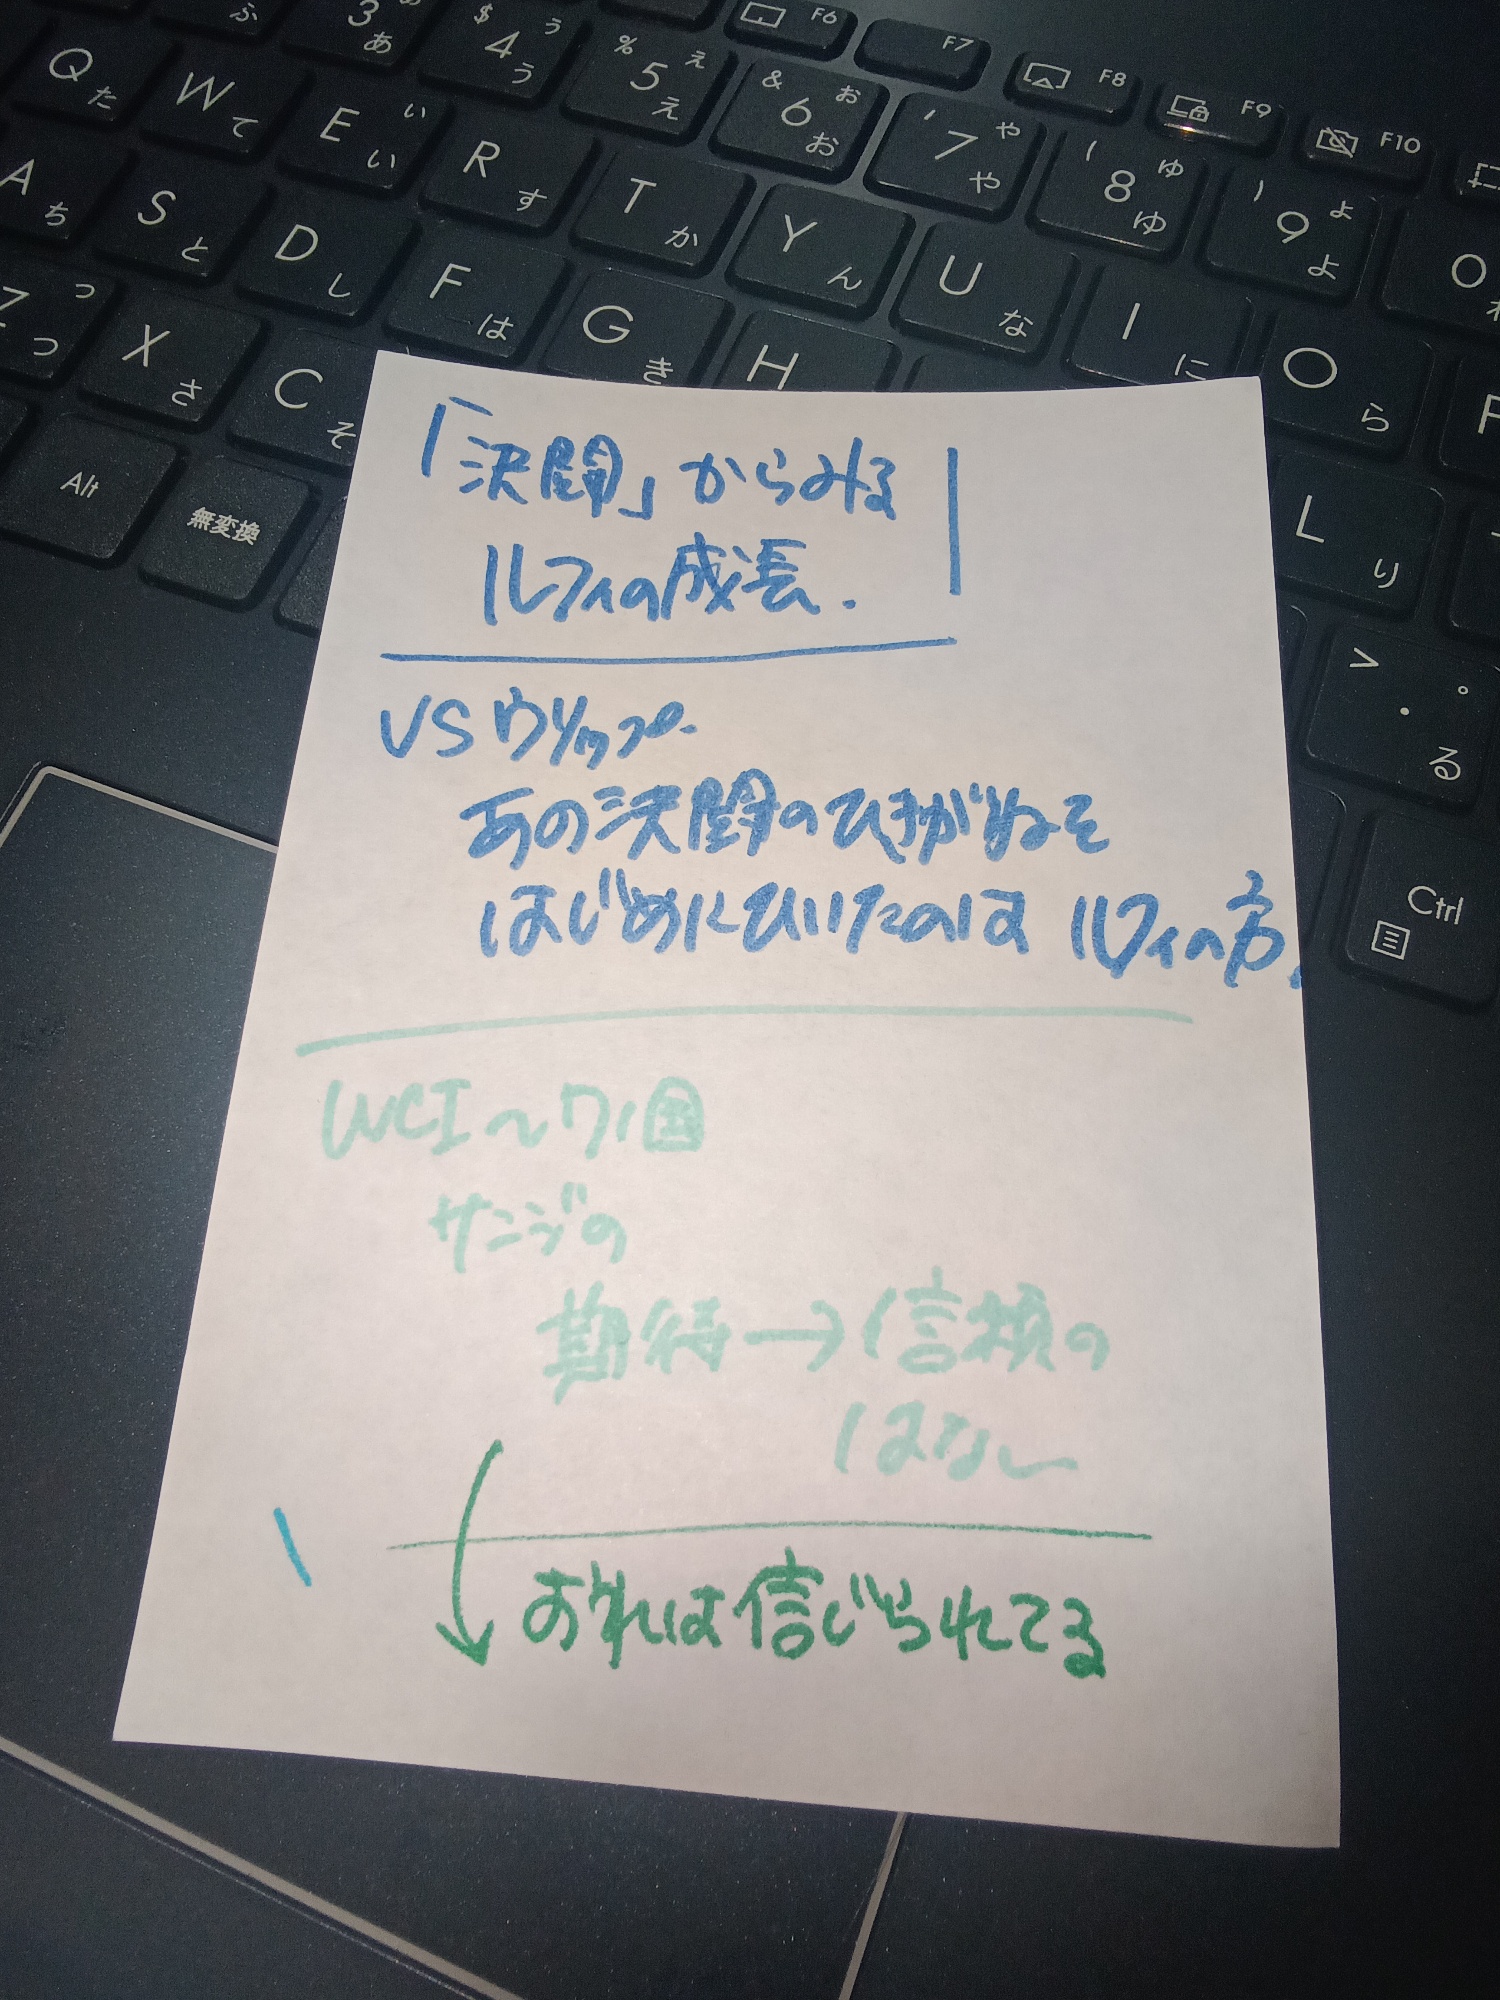 ふ
3 あ
$ 4 う う
% 5 え え
& 6 お お
' 7 や や
( 8 ゆ ゆ
) 9 よ よ
F6
F7
F8
F9
F10
Q た
W て
E い い
R す
T か
Y ん
U な
I に
O ら
A ち
S と
D し
F は
G き
H
L り
Z つ つ
X さ
C そ
> . 。 る
Alt
無変換
Ctrl
「決闘」からみる
ルフィの成長.
VSウソップ
あの決闘のひきがねを
はじめにひいたのは ルフィの方
WCI〜ワノ国
サンジの
期待→信頼の
はなし
おれは信じられてる